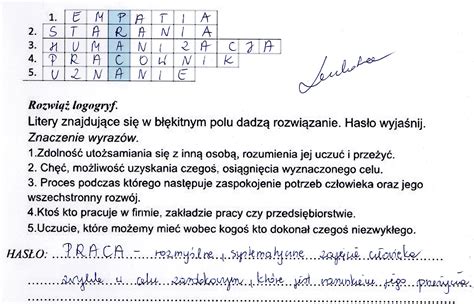 1. EMPATIA
2. STARANIA
3. HUMANIZACJA
4. PRACOWNIK
5. UZNANIE
Rozwiąż logogryf.
Litery znajdujące się w błękitnym polu dadzą rozwiązanie. Hasło wyjaśnij.
Znaczenie wyrazów.
1.Zdolność utożsamiania się z inną osobą, rozumienia jej uczuć i przeżyć.
2. Chęć, możliwość uzyskania czegoś, osiągnięcia wyznaczonego celu.
3. Proces podczas którego następuje zaspokojenie potrzeb człowieka oraz jego
wszechstronny rozwój.
4.Ktoś kto pracuje w firmie, zakładzie pracy czy przedsiębiorstwie.
5.Uczucie, które możemy mieć wobec kogoś kto dokonał czegoś niezwykłego.
HASŁO: PRACA – rozmyślne, systematyczne zajęcie człowieka
zwykle w celu zarobkowym, które jest warunkiem jego przeżycia.